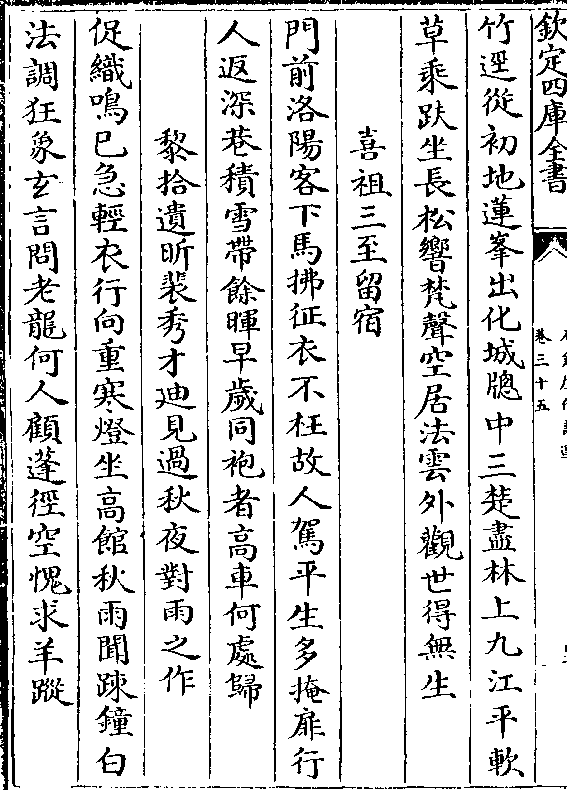 欽定四庫全書
卷三十五
竹逕從初地蓮峯出化城牕中三楚盡林上九江平軟
草乘趺坐長松響梵聲空居法雲外觀世得無生
喜祖三至留宿
門前洛陽客下馬拂征衣不枉故人駕平生多掩扉行
人返深巷積雪帶餘暉早歲同袍者高車何處歸
黎拾遺昕裴秀才迪見過秋夜對雨之作
促織鳴已急輕衣行向重寒燈坐高館秋雨聞疎鐘白
法調狂象玄言問老龍何人顧蓬徑空愧求羊蹤